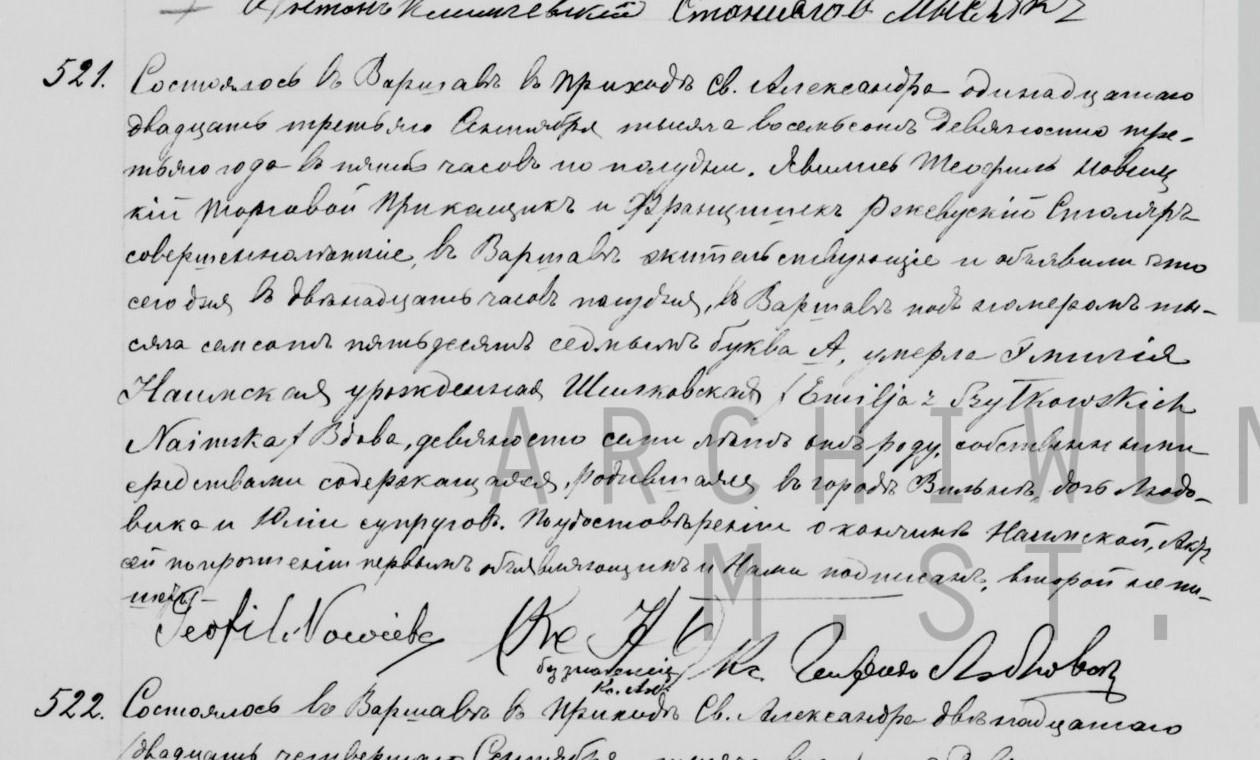 Антонъ Станиславъ
521. Состоялось въ Варшавѣ въ приходѣ Св. Александра одинадцатаго
двадцать третьяго Сентября тысяча восемьсотъ девяносто тре-
тьяго года въ пять часовъ по полудни. Явились Теофиль Новиц
кій торговой прикащикъ и Францишекъ Ржевускій Столяръ
совершеннолѣтніе, въ Варшавѣ жительствующіе и объявили что
сегодня въ двѣнадцать часовъ полудня, въ Варшавѣ подъ номеромъ ты-
сяча семсотъ пятьдесятъ седмымъ буква А, умерла Эмилія
Наимская урожденная Шитковская / Emilja z Szytkowskich
Naimska / Вдова, девяносто семи лѣтъ отъ роду, собственными
средствами содержащаяся, родившаяся въ городѣ Вильнѣ, дочь Людо-
вика и Юліи супруговъ. По удостовѣреніи о кончинѣ Наимской, Актъ
сей по прочтеніи первымъ объявляющимъ и Нами подписанъ, второй не пи-
шетъ.
Teofil Nowicki
Кс.
ARCHIWUM
M.ST.
522. Состоялось въ Варшавѣ въ приходѣ Св. Александра двѣнадцатаго
двадцать четвертаго Сентября